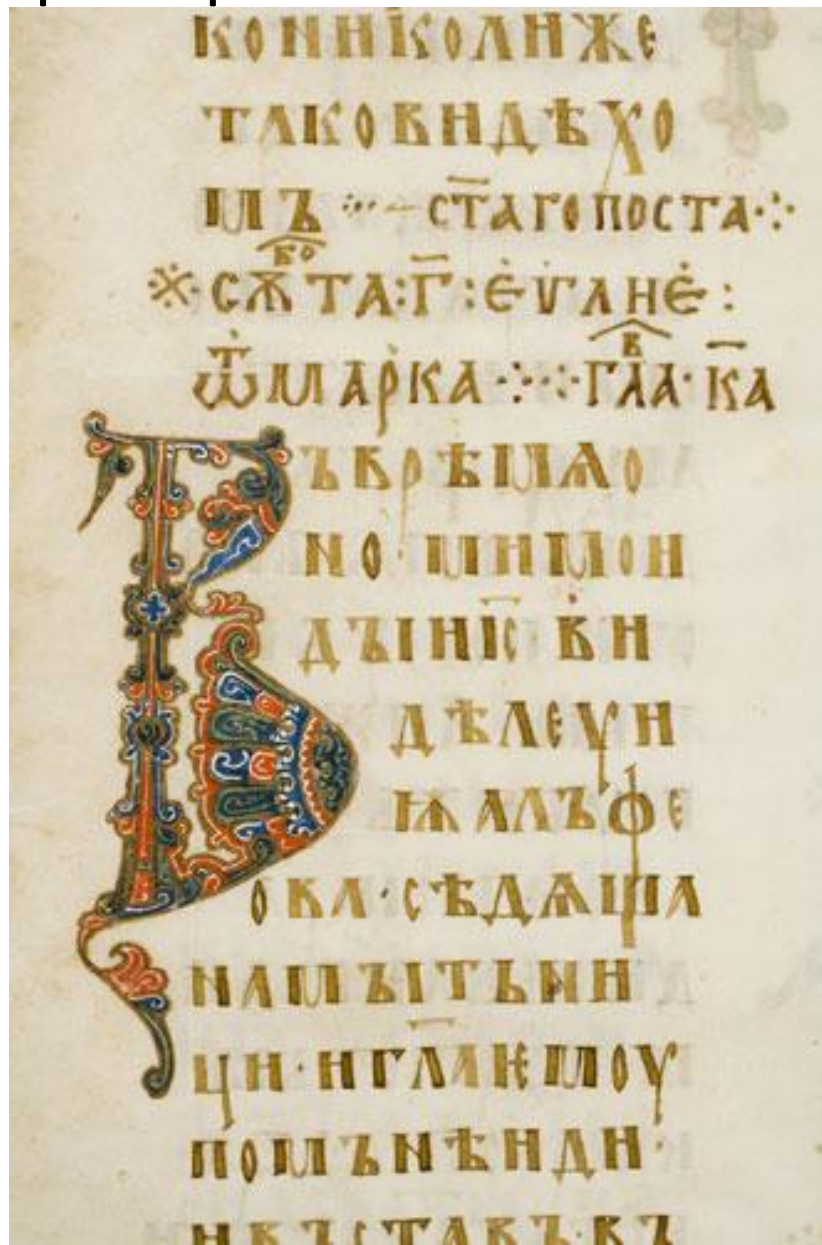 КОНИКОЛИЖЕ
ТАКОВИДѢХО
МЪ ⁘ — СТ҃АГОПОСТА·⁘
※ СѪⷠ҇ⷪТА:Г҃:ЕѴАИЕ:
ѾМАРКА·⁘·⁘ГЛАⷡ҇·К҃А
ВЪВРѢМѦО
НО·МИМОИ
ДЪІИІ҃С ВИ
ДѢЛЕѴИ
Ѭ АЛЪФЕ
ОВА·СѢДѦЩА
НАМЪІТЬНИ
ЦИ·ИГЛ҃АѤМОУ
ПОМЪНѢИДИ·
ИВЪСТАВЪ·ВЪ